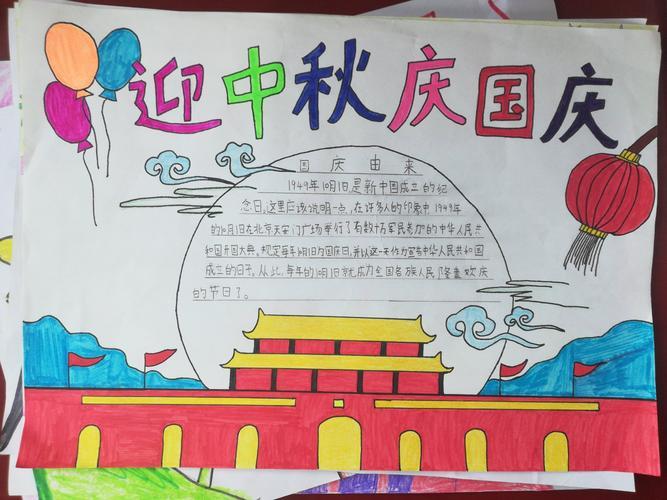 迎中秋庆国庆
国庆由来
1949年10月1日是新中国成立的纪
念日。这里应该说明一点，在许多人的印象中，1949年
的10月1日在北京天安门广场举行了有数十万军民参加的中华人民共
和国开国大典。规定每年10月1日为国庆日，并以这一天作为宣告中华人民共和国
成立的日子，从此，每年的10月1日就成为全国各族人民隆重欢庆
的节日了。